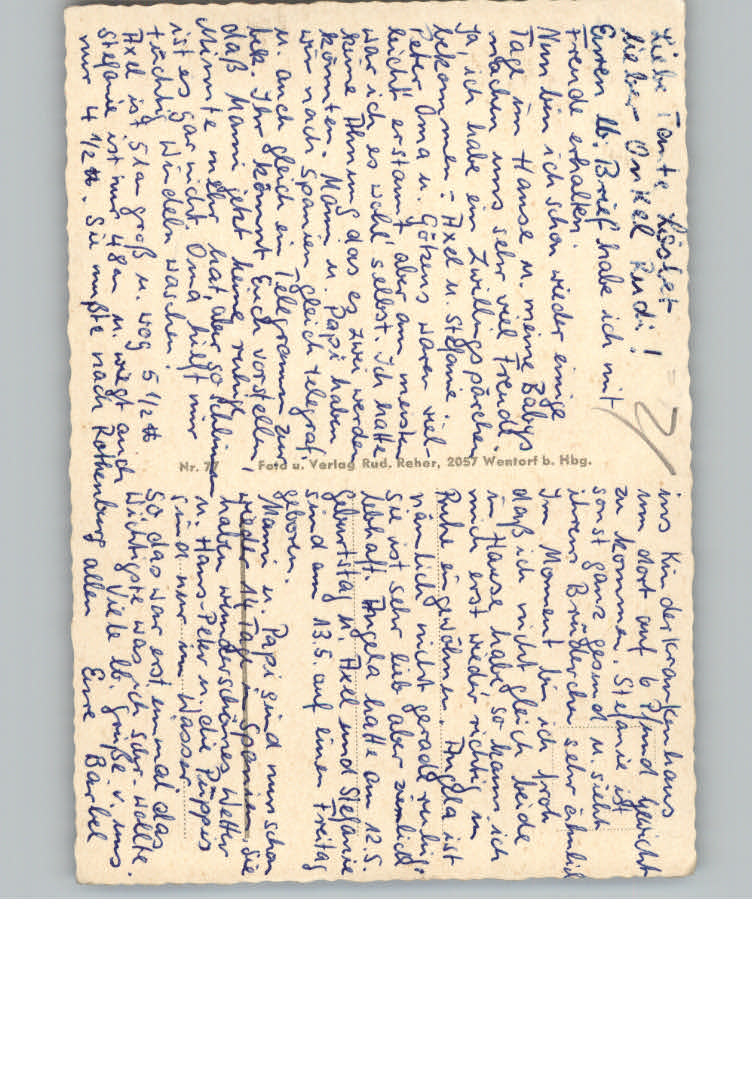 Liebe Tante Lisbet
lieber Onkel Rudi!
Euren lb. Brief habe ich mit
Freude erhalten.
Nun bin ich schon wieder einige
Tage im Hause u. meine Babys
machen uns sehr viel Freude.
Ja, ich habe ein Zwillingspärchen
bekommen. - Axel u. Stefanie.
Peter Oma u. Götzens waren viel-
leicht erstaunt aber am meisten
war ich es wohl selbst. Ich hatte
keine Ahnung das es zwei werden
könnten. Mami u. Papi haben
wir nach Spanien gleich telegraf.
u. auch gleich ein Telegramm zur-
ück. Ihr könnt Euch vorstellen,
daß Mami jetzt keine ruhige
Minute mehr hat, aber so schlimm
ist es gar nicht. Oma hilft mir
tüchtig Windeln waschen.
Axel ist 51 cm groß u. wog 5 1/2 ℔
Stefanie ist nur 48 cm u. wiegt auch
nur 4 1/2 ℔. Sie mußte nach Rothenburg
ins Kinderkrankenhaus
um dort auf 6 Pfund Gewicht
zu kommen. Stefanie ist
sonst ganz gesund u. sieht
ihrem Brüderchen sehr ähnlich
Im Moment bin ich froh
daß ich nicht gleich beide
im Hause habe so kann ich
mich erst wieder richtig in
Ruhe eingewöhnen. Angela ist
nämlich nicht gerade ruhig.
Sie ist sehr lieb aber ziemlich
lebhaft. Angela hatte am 12.5.
Geburtstag u. Axel und Stefanie
sind am 13.5. auf einen Freitag
geboren.
Mami u. Papi sind nun schon
wieder 14 Tage in Spanien. Sie
haben wunderschönes Wetter
u. Hans-Peter u. die Puppis
sind nur im Wasser.
So das war erst einmal das
Wichtigste was ich schr. wollte.
Viele lb. Grüße v. uns
allen Eure Bärbel
Nr. 77 Foto u. Verlag Rud. Reher, 2057 Wentorf b. Hbg.